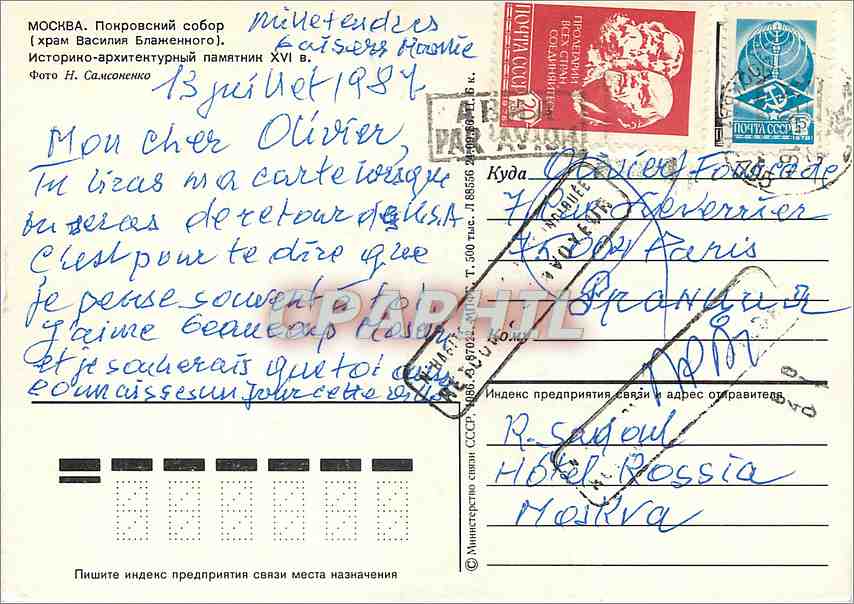 МОСКВА. Покровский собор
(храм Василия Блаженного).
Историко-архитектурный памятник XVI в.
Фото Н. Самсоненко
Mille tendres
baisers Mamie
13 juillet 1987
Mon cher Olivier,
Tu liras ma carte lorsque
tu seras de retour de USA
C'est pour te dire que
je pense souvent à toi
J'aime beaucoup Moscou
et je souhaiterais que toi aussi
connaisses un jour cette ville
ПОЧТА СССР
ПРОЛЕТАРИИ
ВСЕХ СТРАН
СОЕДИНЯЙТЕСЬ
ПОЧТА СССР
АВИА
PAR AVION
Куда
Olivier
7 rue Leverrier
75006 Paris
Франция
Кому
N'HABITE INDIQUÉE
RETOUR ENVOYEUR
CPAPHIL
Индекс предприятия связи и адрес отправителя
R. Sagout
Hôtel Rossia
Moskva
© Министерство связи СССР, 1986. З. 87022. Т. 500 тыс. Л 88536 Ц. 6 к.
Пишите индекс предприятия связи места назначения